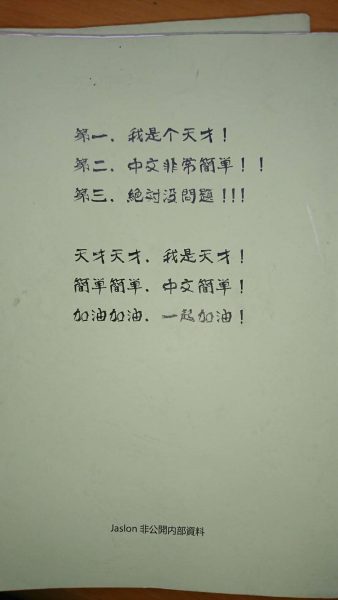 第一．我是个天才！
第二．中文非常簡単！！
第三．絶対没問題!!!
天才天才．我是天才！
簡単簡単．中文簡単！
加油加油．一起加油！
Jaslon 非公開内部資料